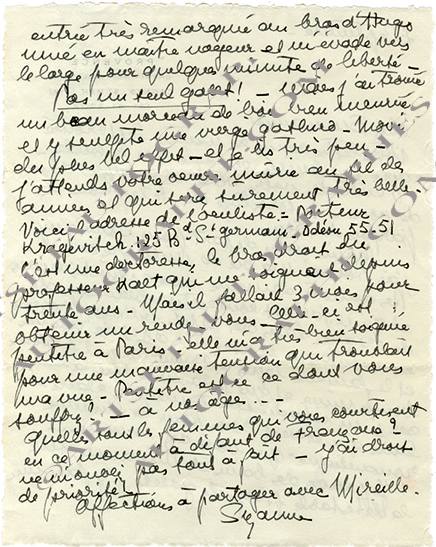 entrée très remarqué au bras d'Hugo
mué en maître nageur et m'évade vers
le large pour quelques minute de liberté —
Pas un seul galet! — mais j'ai trouvé
un beau morceau de bois bien
et y sculpte une vierge
du plus bel effet — et je lis très peu —
j'attends votre oeuvre
et qui sera surement très belle.
Voici adresse de l'oculiste — Docteur
Kragévitch. 125 Bd St germain. Odéon 55-51
c'est une doctoresse, le bras droit du
professeur qui me soignait depuis
trente ans — Mais il fallait 3 mois pour
obtenir un rendez vous celle-ci est
peutêtre à Paris — elle m'a très bien soignée
pour une mauvaise tension qui troublait
ma vue — Peutêtre est ce ce dont vous
souffrez? — à nos âges . . . —
Quelles sont les femmes qui vous courtisent
en ce moment à défaut de Françoise?
ne m'oubliez pas tout à fait — j'ai droit
de priorité!
Affections à partager avec Mireille.
Suzanne